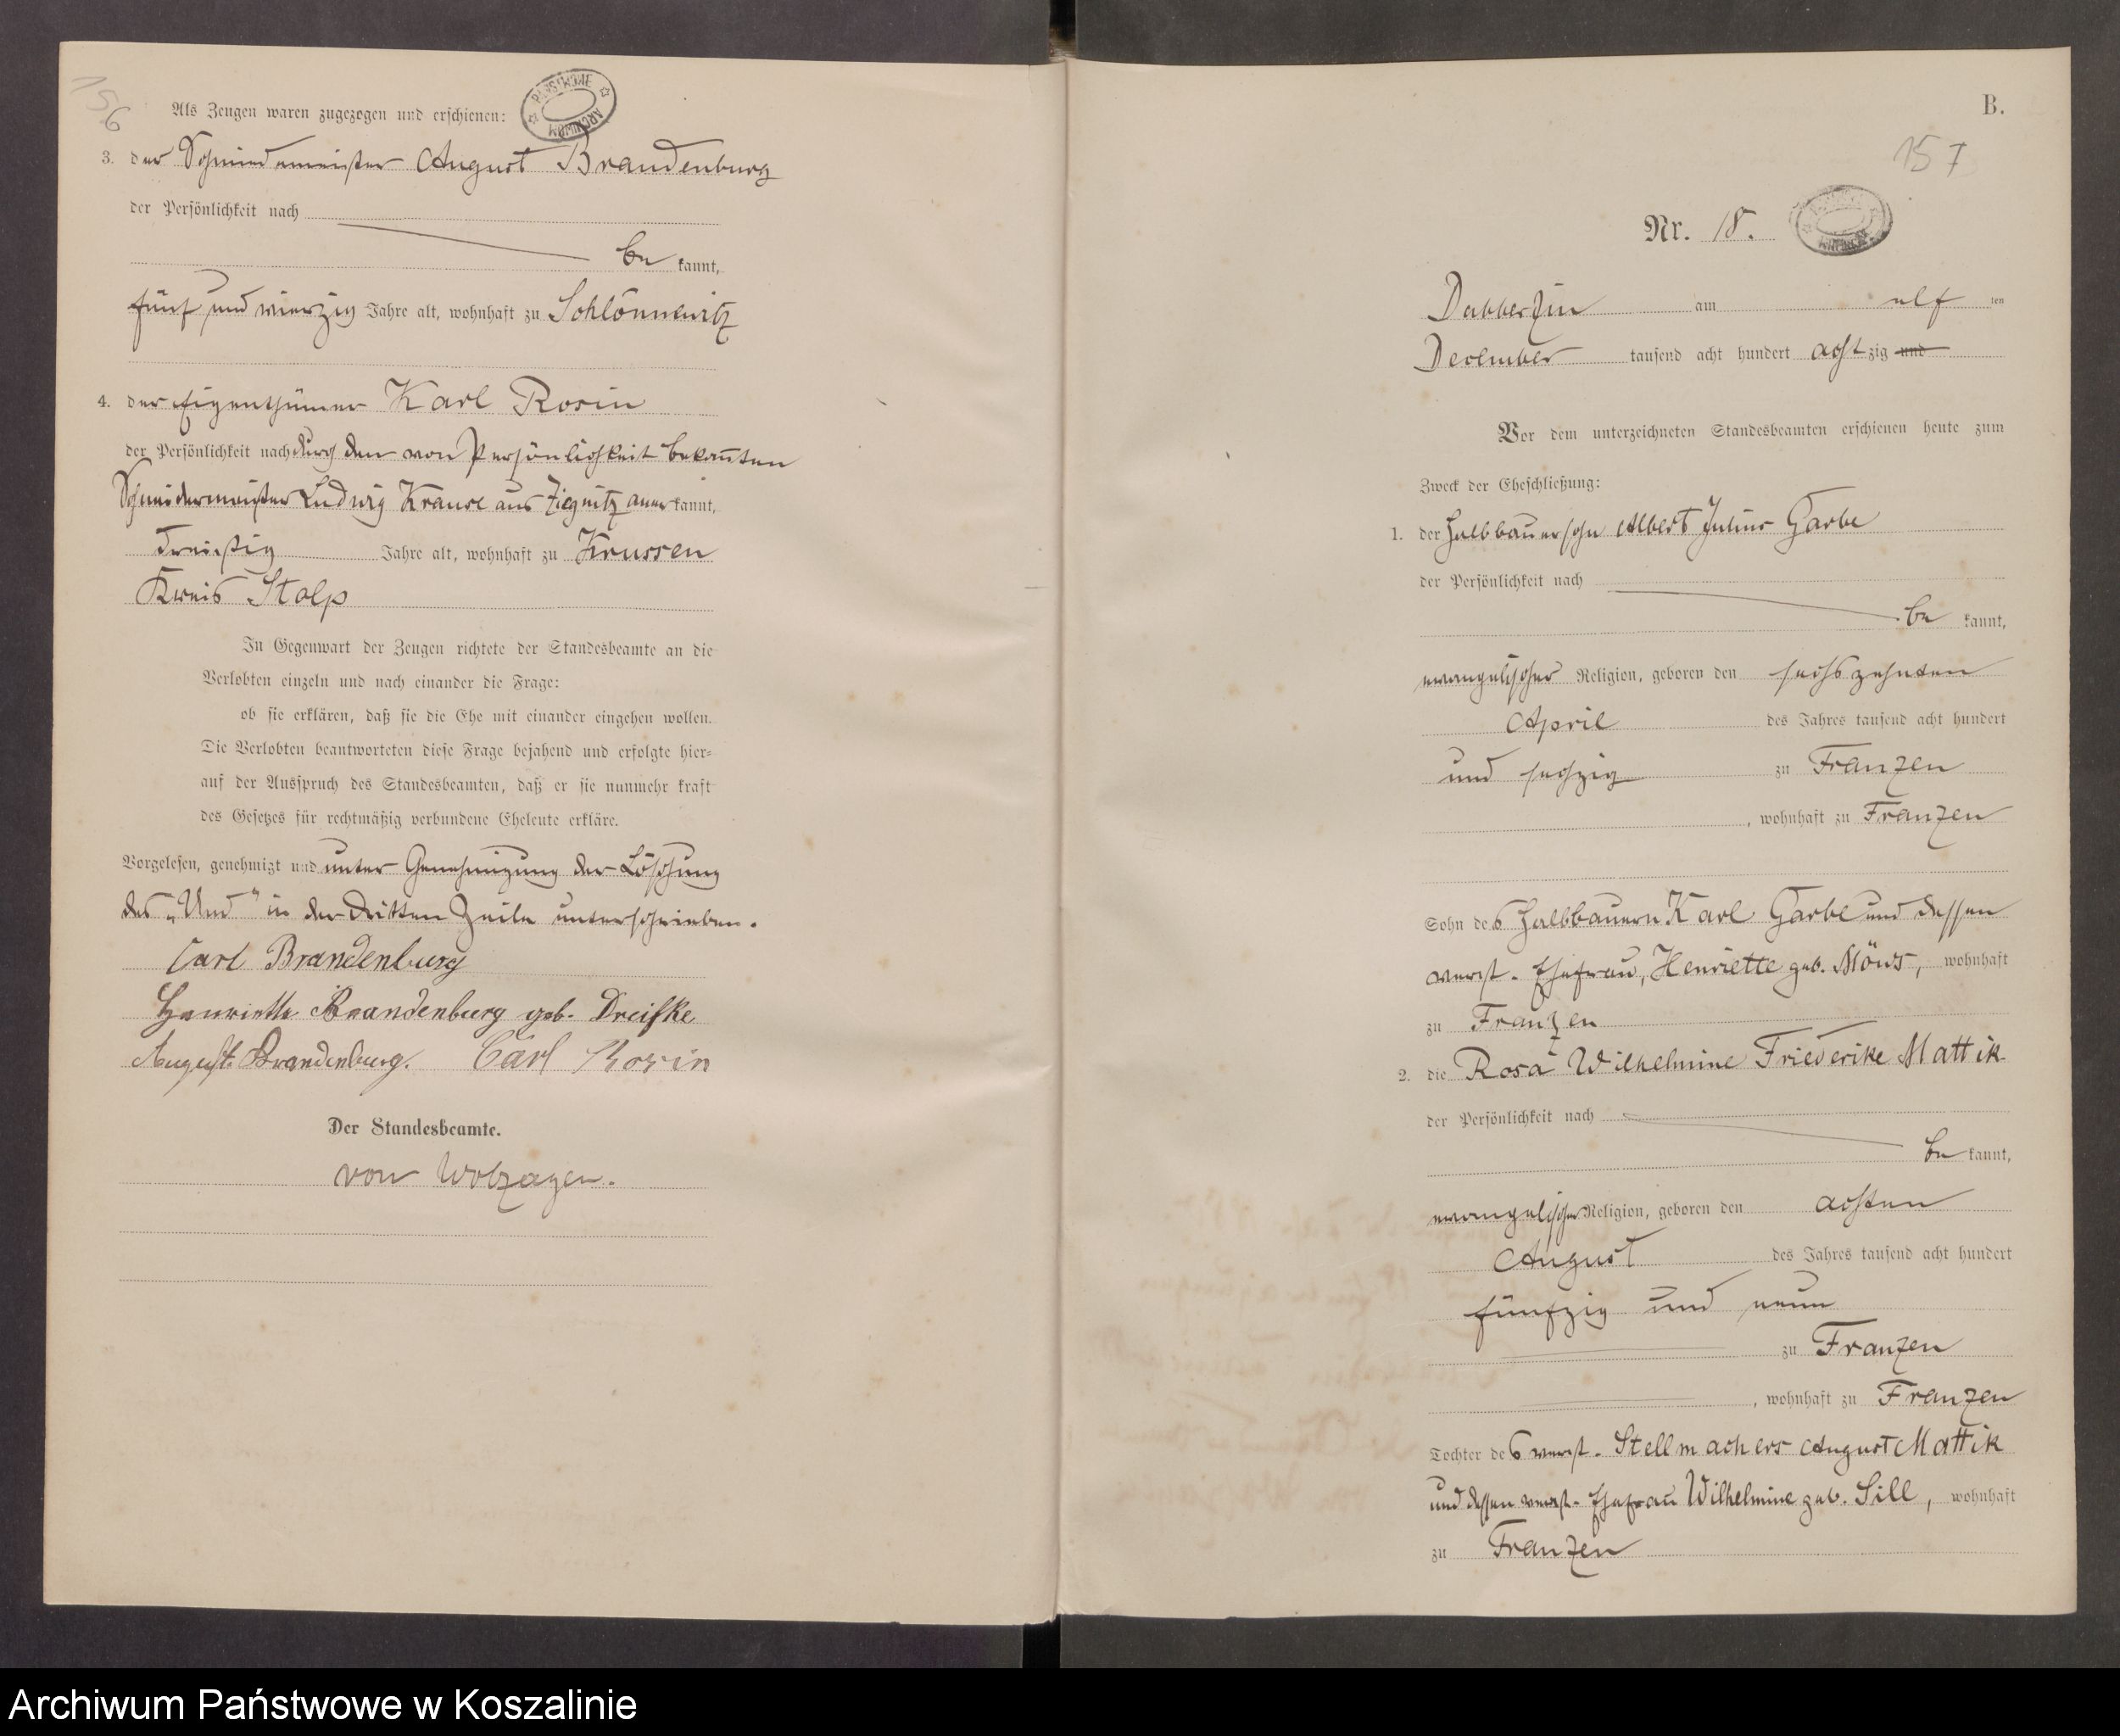 156
Als Zeugen waren zugezogen und erschienen:
PAŃSTWOWE ARCHIWUM
3. der Schmiedemeister August Brandenburg
der Persönlichkeit nach
be kannt,
fünf und vierzig Jahre alt, wohnhaft zu Schlönnewitz
4. der Eigenthümer Karl Rosin
der Persönlichkeit nach durch den von Persönlichkeit bekannten
Schneidermeister Ludwig Krause aus Ziegnitz aner kannt,
dreißig Jahre alt, wohnhaft zu Krussen
Kreis Stolp
In Gegenwart der Zeugen richtete der Standesbeamte an die
Verlobten einzeln und nach einander die Frage:
ob sie erklären, daß sie die Ehe mit einander eingehen wollen.
Die Verlobten beantworteten diese Frage bejahend und erfolgte hier-
auf der Ausspruch des Standesbeamten, daß er sie nunmehr kraft
des Gesetzes für rechtmäßig verbundene Eheleute erkläre.
Vorgelesen, genehmigt und unter Genehmigung der Löschung
des „Und" in der dritten Zeile unterschrieben.
Carl Brandenburg
Henriette Brandenburg geb. Dreifke
August Brandenburg. Carl Rosin
Der Standesbeamte.
von Wolzogen.
B.
157
Nr. 18.
Dabberzin am elf ten
December tausend acht hundert acht zig und
Vor dem unterzeichneten Standesbeamten erschienen heute zum
Zweck der Eheschließung:
1. der Halbbauersohn Albert Julius Garbe
der Persönlichkeit nach
be kannt,
evangelischer Religion, geboren den sechszehnten
April des Jahres tausend acht hundert
und sechzig zu Franzen
, wohnhaft zu Franzen
Sohn des Halbbauern Karl Garbe und dessen
verst. Ehefrau, Henriette geb. Möws, wohnhaft
zu Franzen
2. die Rosa Wilhelmine Friederike Mattik
der Persönlichkeit nach
be kannt,
evangelischer Religion, geboren den achten
August des Jahres tausend acht hundert
fünfzig und neun
zu Franzen
, wohnhaft zu Franzen
Tochter des verst. Stellmachers August Mattik
und dessen verst. Ehefrau Wilhelmine geb. Sill, wohnhaft
zu Franzen
Archiwum Państwowe w Koszalinie